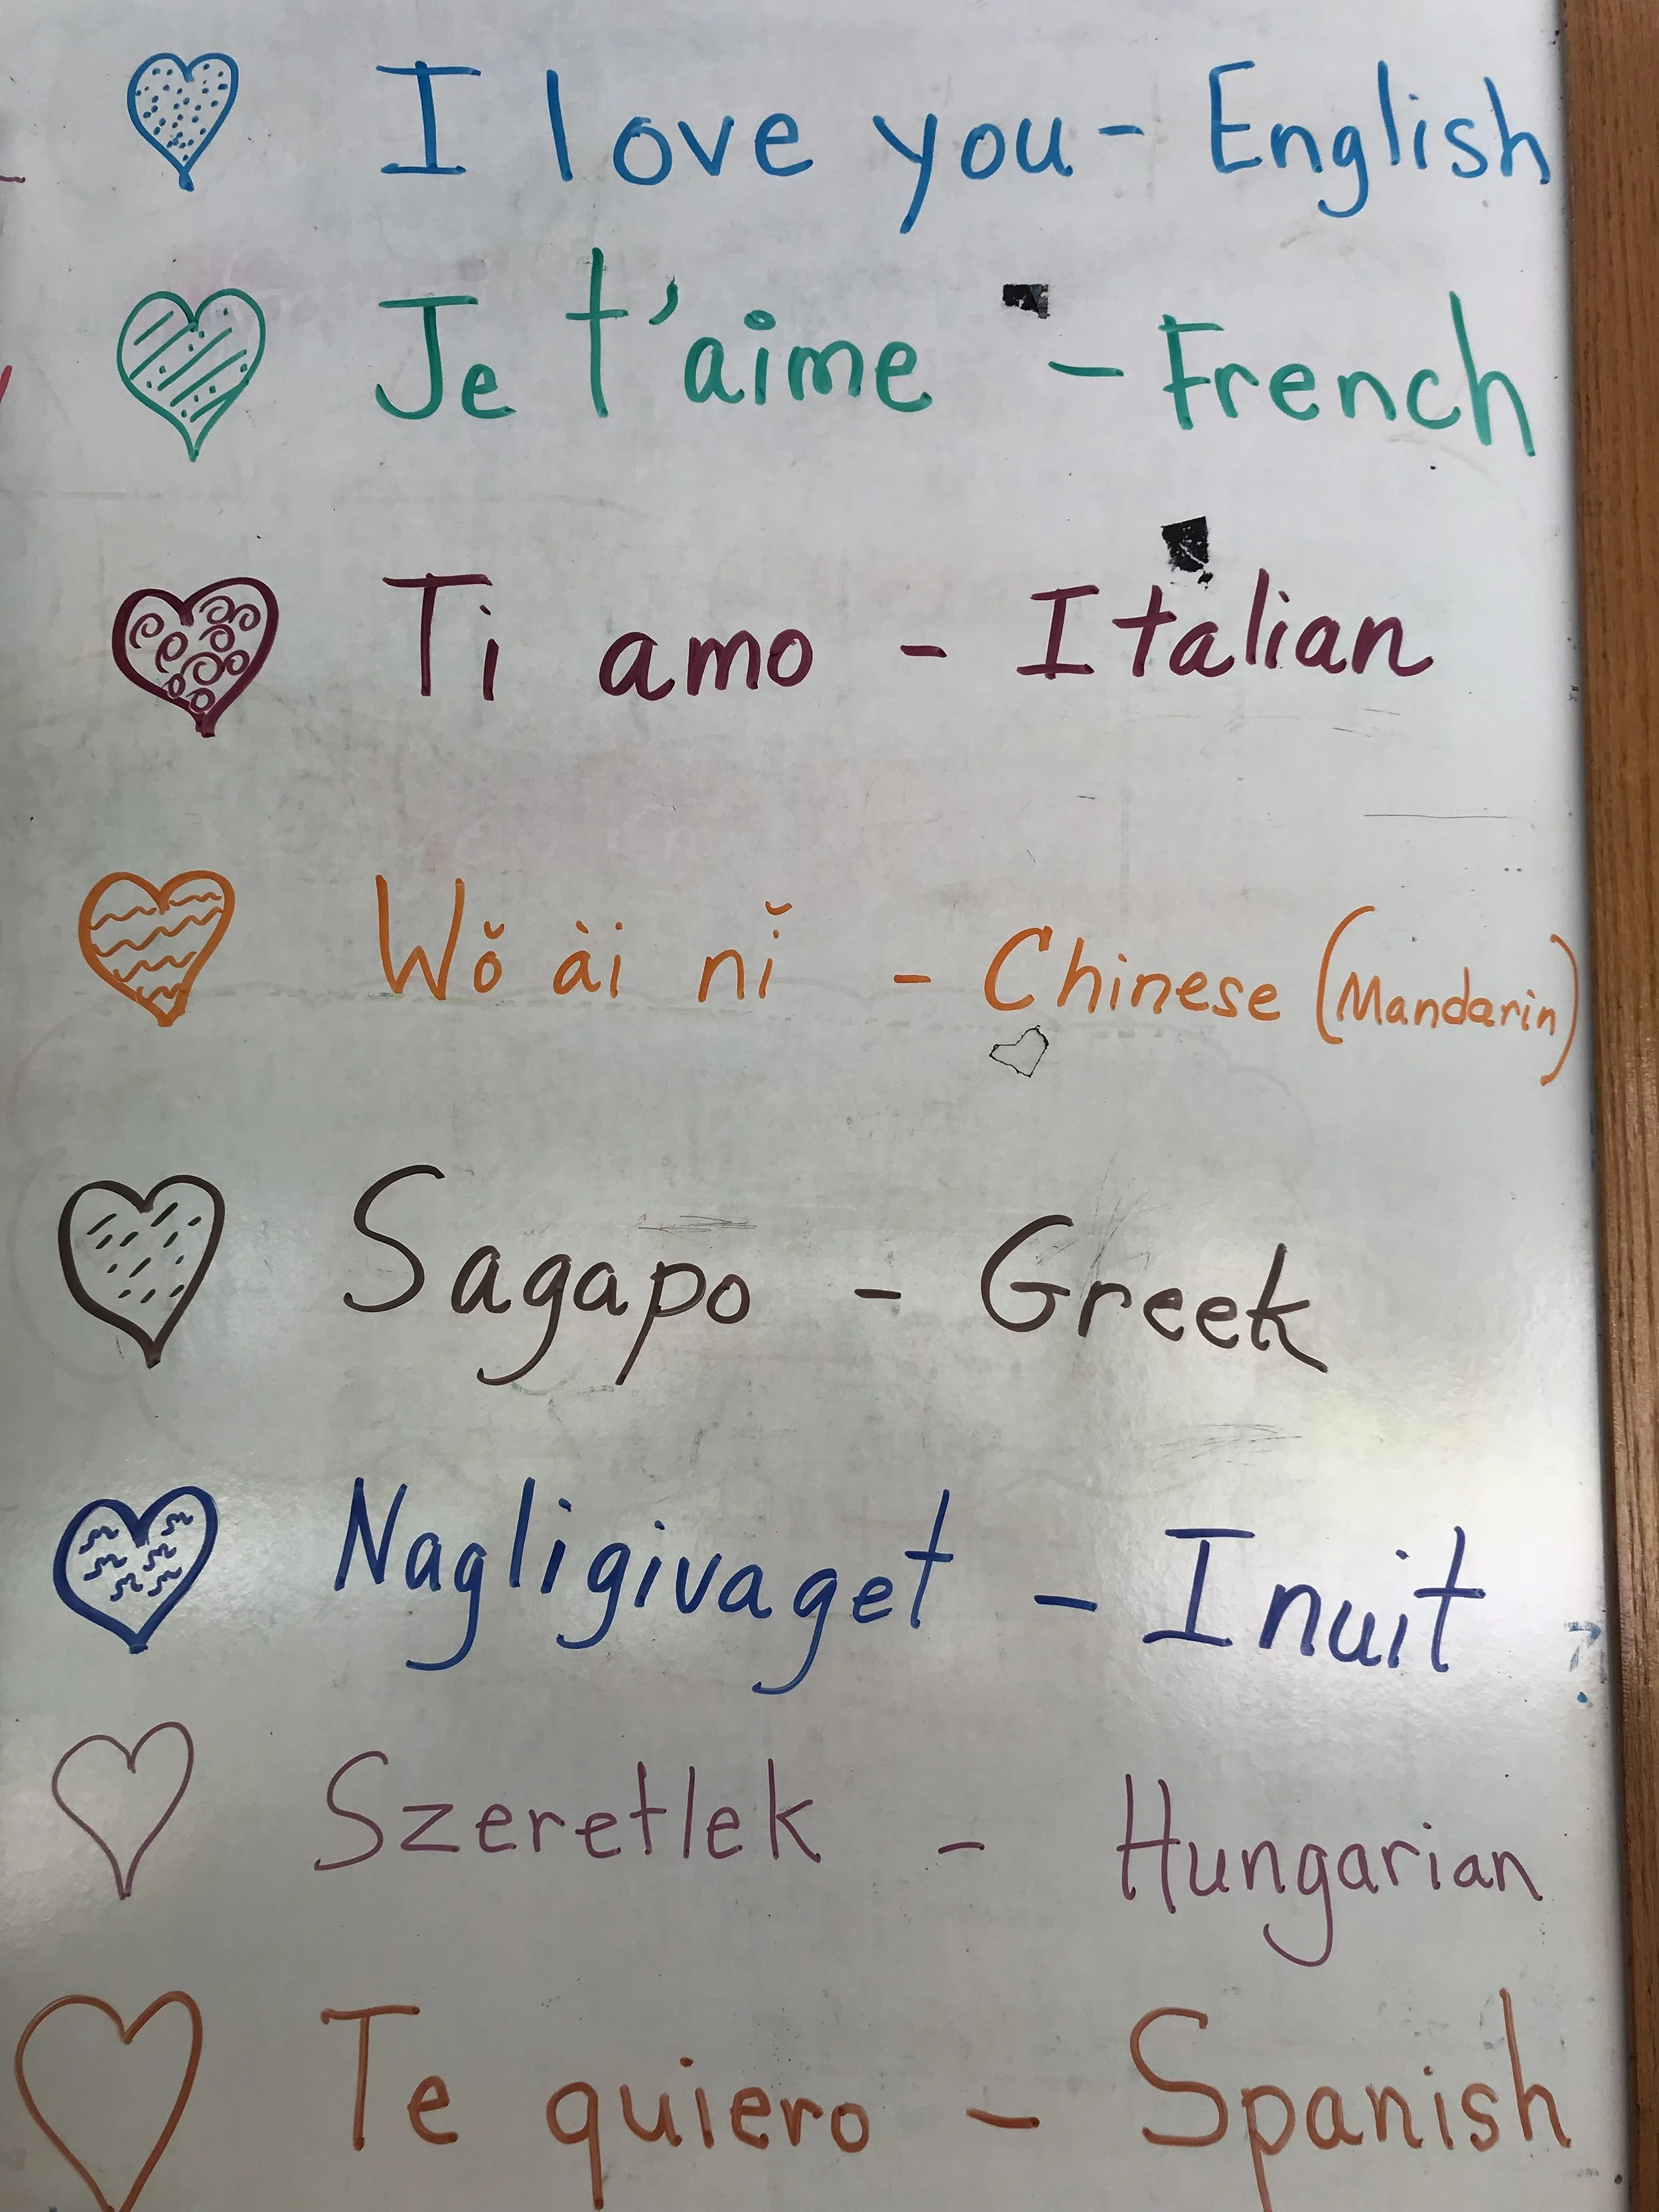 I love you - English
Je t'aime - French
Ti amo - Italian
Wǒ ài nǐ - Chinese (Mandarin)
Sagapo - Greek
Nagligivaget - Inuit
?
Szeretlek - Hungarian
Te quiero - Spanish